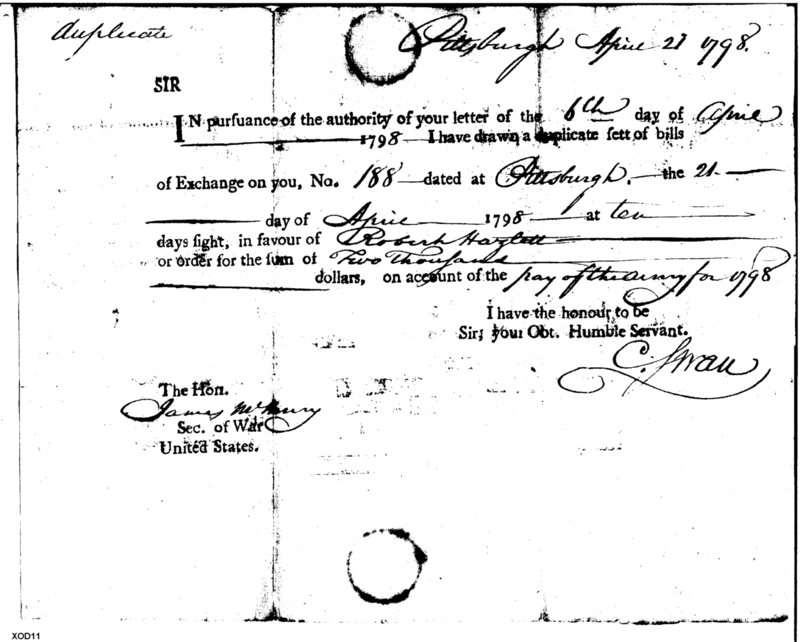 duplicate
Pittsburgh April 21 1798.
SIR
IN pursuance of the authority of your letter of the 6th day of April
1798 I have drawn a duplicate sett of bills
of Exchange on you, No. 188 dated at Pittsburgh. the 21
day of April 1798 at ten
days sight, in favour of Robert Hazlett
or order for the sum of Two Thousand
dollars, on account of the pay of the army for 1798
I have the honour to be
Sir, your Obt. Humble Servant.
C. Swan
The Hon.
James McHenry
Sec. of War
United States.
XOD11